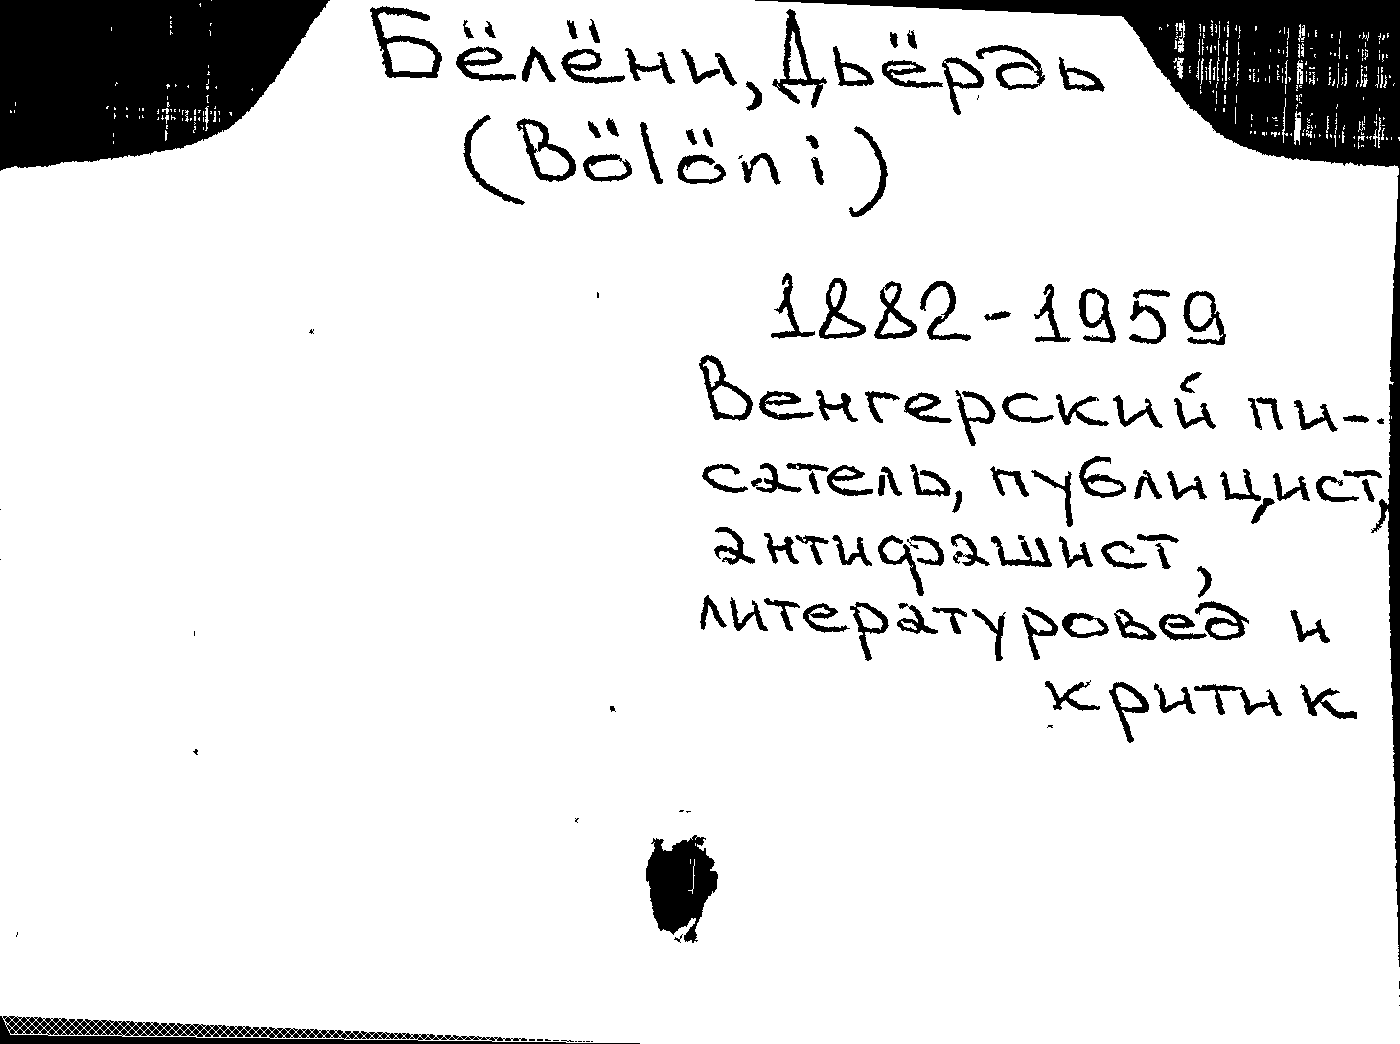 Бёлёни, Дьёрдь
(Bölöni)
1882-1959
Венгерский пи-
сатель, публицист,
антифашист,
литературовед и
критик